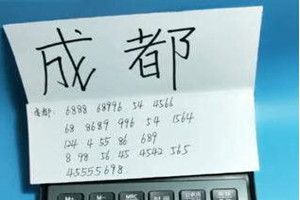 成都
成都: 6898 68996 54 4566
68 8689 996 54 1564
124 4 55 86 689
8 98 56 45 4542 565
45555698